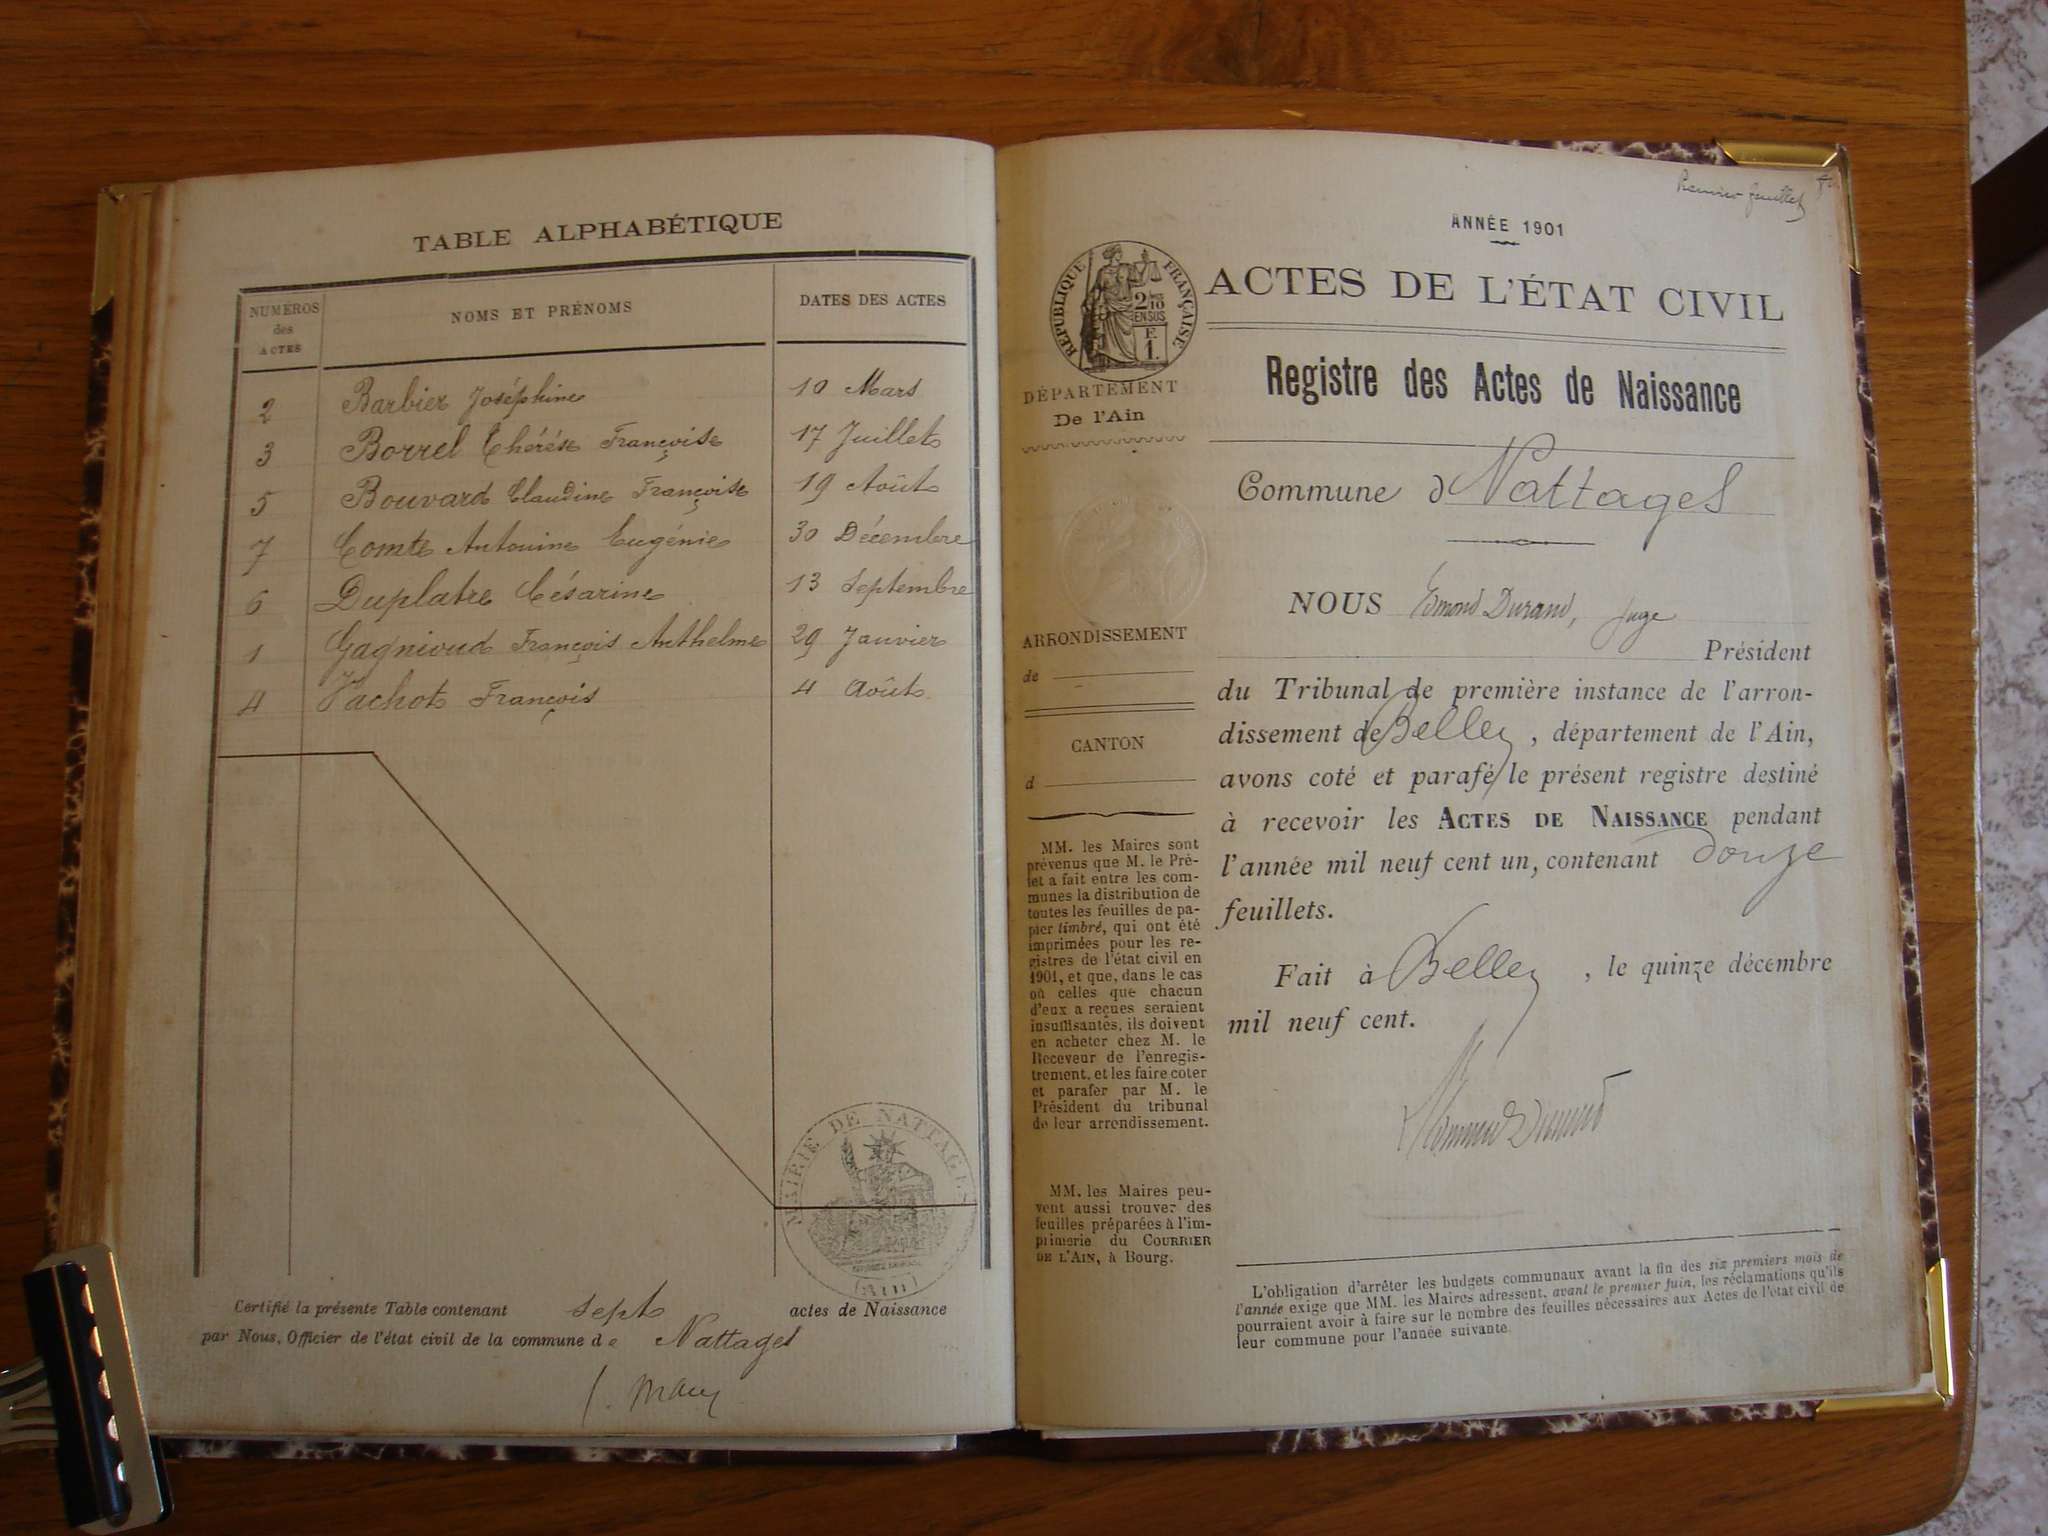 TABLE ALPHABÉTIQUE
NUMÉROS des ACTES NOMS ET PRÉNOMS DATES DES ACTES
2 Barbier Joséphine 10 Mars
3 Borrel Thérése Françoise 17 Juillet
5 Bouvard Claudine Françoise 19 Août
7 Comte Antonine Eugénie 30 Décembre
6 Duplatre Césarine 13 Septembre
1 Gagnioud François Anthelme 29 Janvier
4 Vachot François 4 Août
MAIRIE DE NATTAGES
(AIN)
Certifié la présente Table contenant sept actes de Naissance
par Nous, Officier de l'état civil de la commune de Nattages
Premier feuillet
ANNÉE 1901
RÉPUBLIQUE FRANÇAISE
2/10
EN SUS
F.
1.
ACTES DE L'ÉTAT CIVIL
DÉPARTEMENT
De l'Ain
Registre des Actes de Naissance
Commune d Nattages
NOUS Edmond Durand, Juge
Président
du Tribunal de première instance de l'arron-
dissement de Belley, département de l'Ain,
avons coté et parafé le présent registre destiné
à recevoir les ACTES DE NAISSANCE pendant
l'année mil neuf cent un, contenant douze
feuillets.
Fait à Belley, le quinze décembre
mil neuf cent.
Edmond Durand
ARRONDISSEMENT
de
CANTON
d
MM. les Maires sont
prévenus que M. le Pré-
fet a fait entre les com-
munes la distribution de
toutes les feuilles de pa-
pier timbré, qui ont été
imprimées pour les re-
gistres de l'état civil en
1901, et que, dans le cas
où celles que chacun
d'eux a reçues seraient
insuffisantes, ils doivent
en acheter chez M. le
Receveur de l'enregis-
trement, et les faire coter
et parafer par M. le
Président du tribunal
de leur arrondissement.
MM. les Maires peu-
vent aussi trouver des
feuilles préparées à l'im-
primerie du COURRIER
DE L'AIN, à Bourg.
L'obligation d'arrêter les budgets communaux avant la fin des six premiers mois de
l'année exige que MM. les Maires adressent, avant le premier juin, les réclamations qu'ils
pourraient avoir à faire sur le nombre des feuilles nécessaires aux Actes de l'état civil de
leur commune pour l'année suivante.